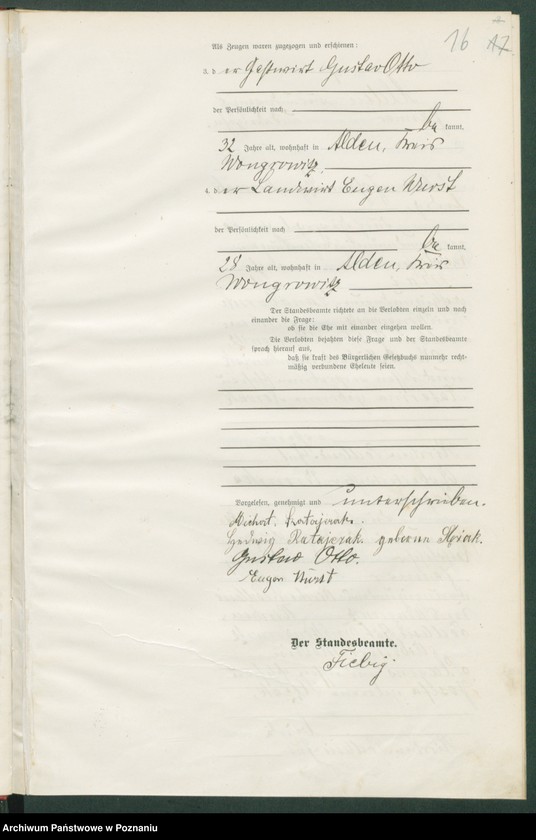 16 17
Als Zeugen waren zugezogen und erschienen:
3. der Gastwirt Gustav Otto
der Persönlichkeit nach
be kannt,
32 Jahre alt, wohnhaft in Alden, Kreis
Wongrowitz
4. der Landwirt Eugen Wurst
der Persönlichkeit nach
be kannt,
28 Jahre alt, wohnhaft in Alden, Kreis
Wongrowitz
Der Standesbeamte richtete an die Verlobten einzeln und nach
einander die Frage:
ob sie die Ehe mit einander eingehen wollen.
Die Verlobten bejahten diese Frage und der Standesbeamte
sprach hierauf aus,
daß sie kraft des Bürgerlichen Gesetzbuchs nunmehr recht-
mäßig verbundene Eheleute seien.
Vorgelesen, genehmigt und unterschrieben.
Ratajczak.
Hedwig Ratajczak geborene
Gustav Otto.
Eugen Wurst
Der Standesbeamte.
Fiebig.
Archiwum Państwowe w Poznaniu